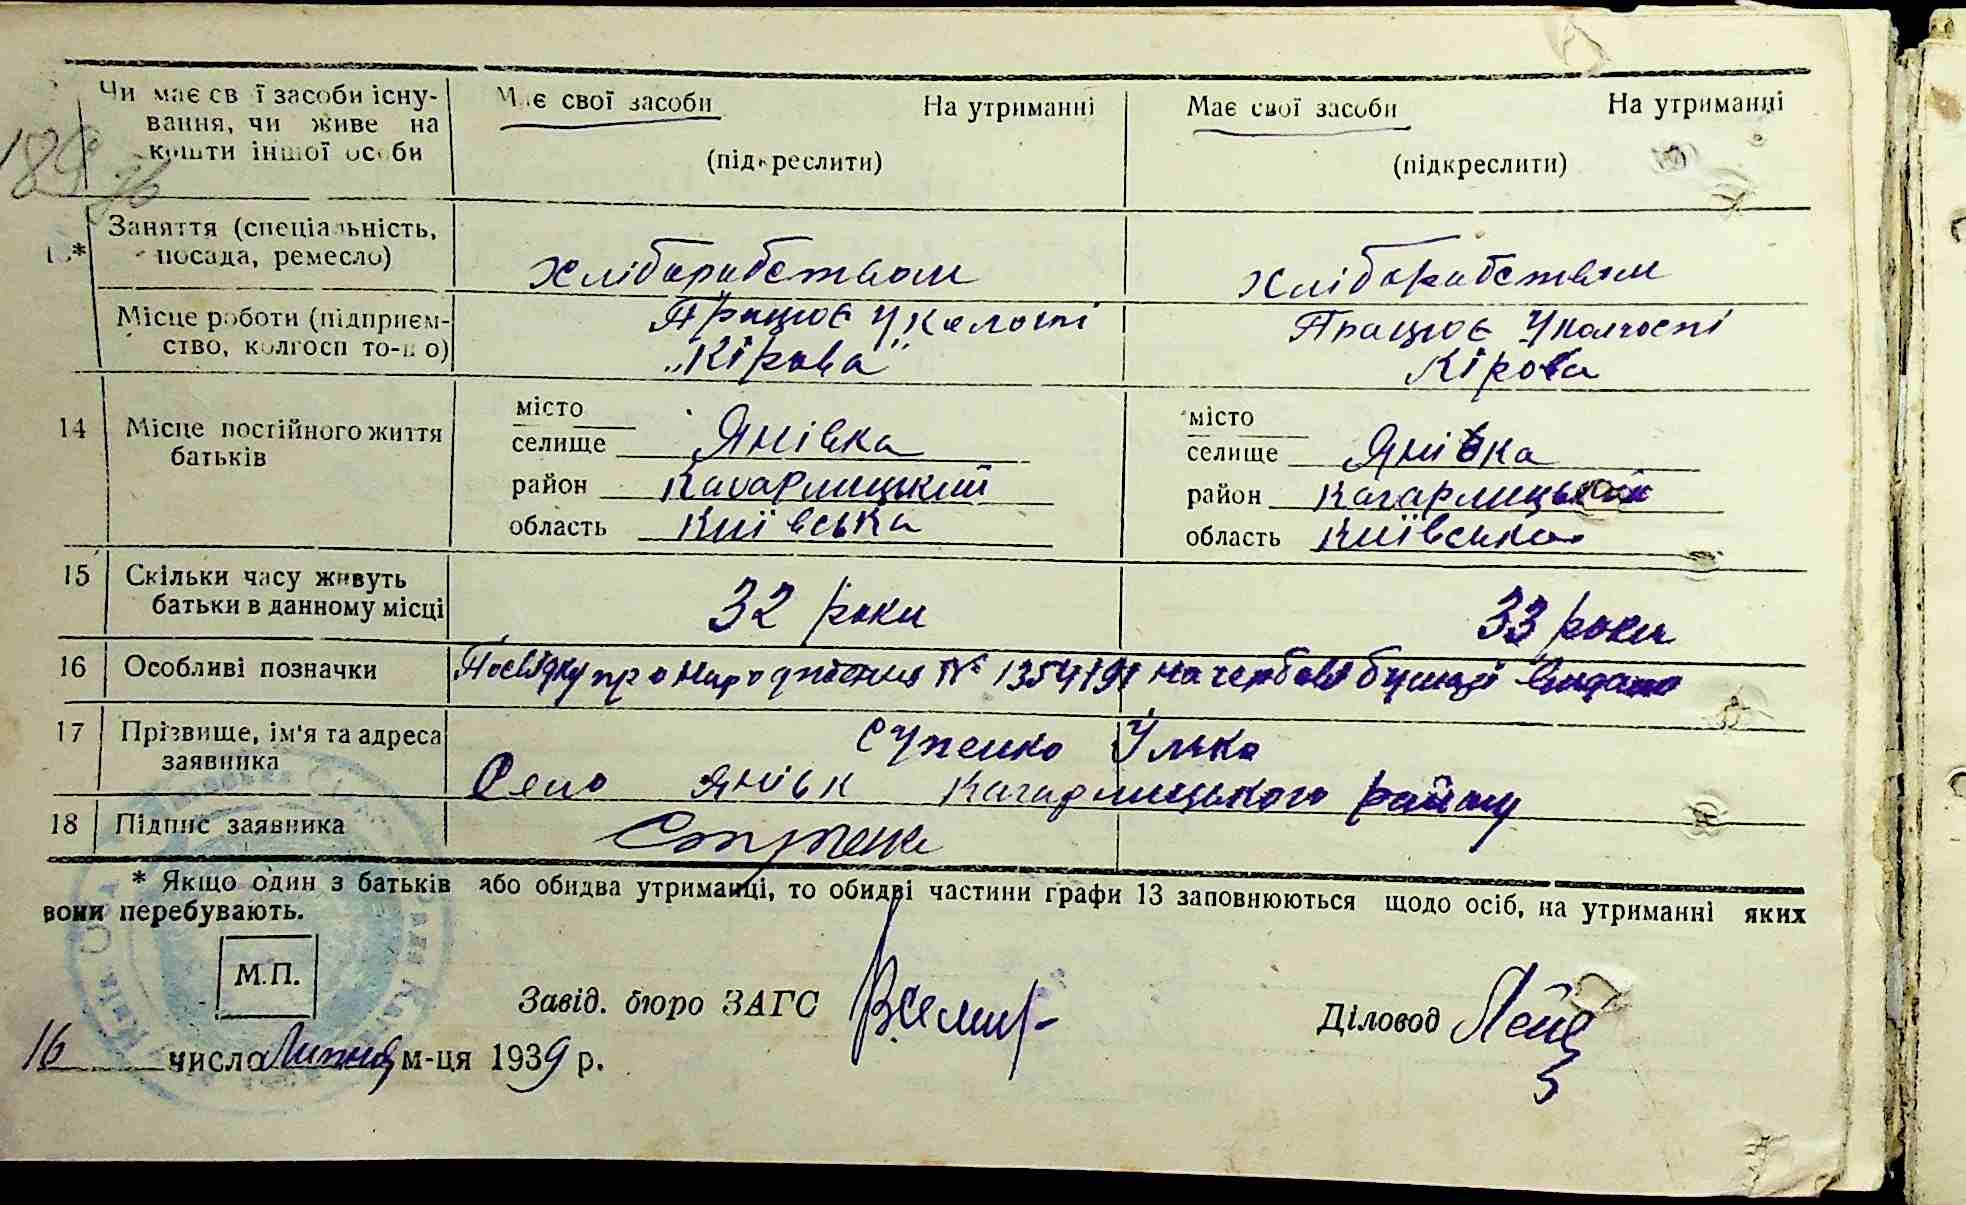 189 зв
Чи має св ї засоби існу-
вання, чи живе на
кошти іншої особи
Має свої засоби На утриманні
(підкреслити)
Має свої засоби На утриманці
(підкреслити)
13*
Заняття (спеціальність,
посада, ремесло)
Хліборобством
Хліборобством
Місце роботи (підприєм-
ство, колгосп то-що)
Працює у колгоспі
„Кірова"
Працює у колгоспі
Кірова
14
Місце постійного життя
батьків
місто
селище Янівка
район Кагарлицький
область Київська
місто
селище Янівка
район Кагарлицький
область Київська
15 Скільки часу живуть
батьки в данному місці
32 роки
33 роки
16 Особливі позначки
Посвідку про народження № 1354791 на гербові бумазі видано
17 Прізвище, ім'я та адреса
заявника
Супенко Улька
Село Янівк Кагарлицького району
18 Підпис заявника
* Якщо один з батьків або обидва утриманці, то обидві частини графи 13 заповнюються щодо осіб, на утриманні яких
вони перебувають.
М.П.
Завід. бюро ЗАГС
Діловод
16 числа Липня м-ця 1939 р.